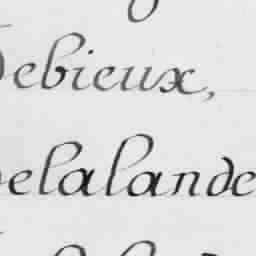 Debieux,
Delalande